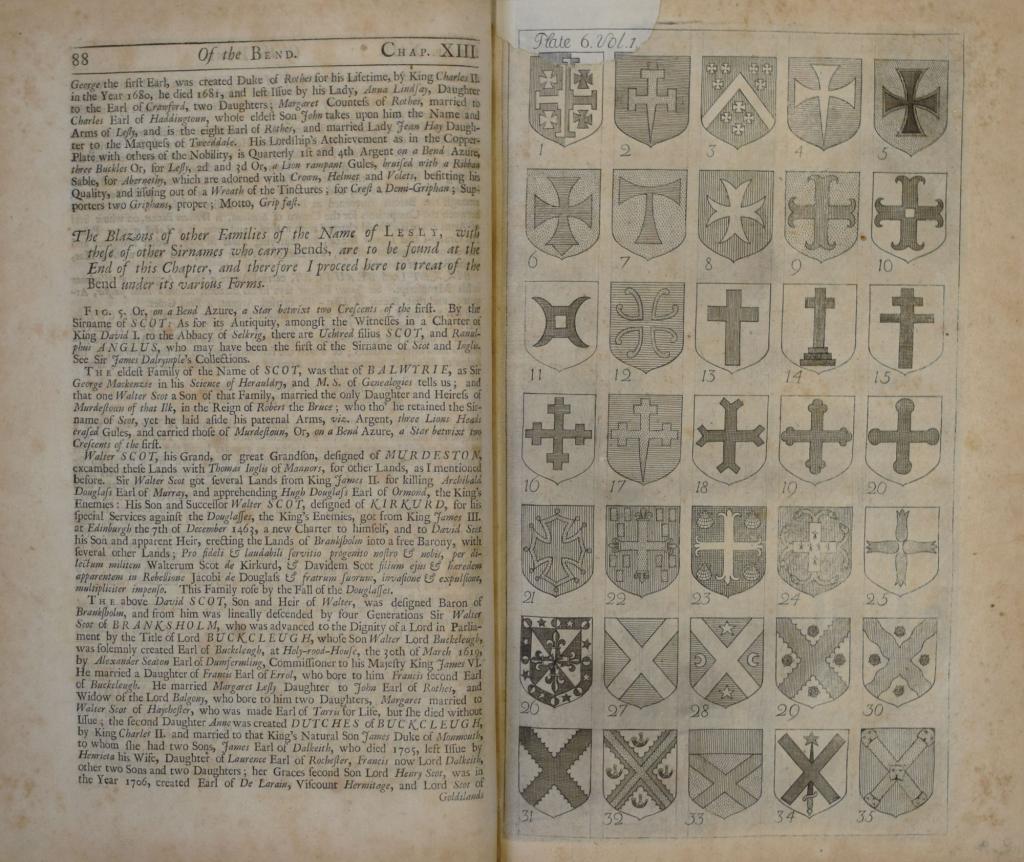 88 Of the BEND. CHAP. XIII.
George the first Earl, was created Duke of Rothes for his Lifetime, by King Charles II.
in the Year 1680, he died 1681, and left Issue by his Lady, Anna Lindsay, Daughter
to the Earl of Crawford, two Daughters; Margaret Countess of Rothes, married to
Charles Earl of Haddingtoun, whose eldest Son John takes upon him the Name and
Arms of Lesly, and is the eight Earl of Rothes, and married Lady Jean Hay Daugh-
ter to the Marquess of Tweeddale. His Lordship's Atchievement as in the Copper-
Plate with others of the Nobility, is Quarterly 1st and 4th Argent on a Bend Azure,
three Buckles Or, for Lesly, 2d and 3d Or, a Lion rampant Gules, bruised with a Ribban
Sable, for Abernethy, which are adorned with Crown, Helmet and Volets, befitting his
Quality, and issuing out of a Wreath of the Tinctures; for Crest a Demi-Griphan; Sup-
porters two Griphans, proper; Motto, Grip fast.
The Blazons of other Families of the Name of LESLY, with
these of other Sirnames who carry Bends, are to be found at the
End of this Chapter, and therefore I proceed here to treat of the
Bend under its various Forms.
FIG. 5. Or, on a Bend Azure, a Star betwixt two Crescents of the first. By the
Sirname of SCOT: As for its Antiquity, amongst the Witnesses in a Charter of
King David I. to the Abbacy of Selkrig, there are Uchtred filius SCOT, and Ranul-
phus ANGLUS, who may have been the first of the Sirname of Scot and Inglis.
See Sir James Dalrymple's Collections.
THE eldest Family of the Name of SCOT, was that of BALWYRIE, as Sir
George Mackenzie in his Science of Herauldry, and M. S. of Genealogies tells us; and
that one Walter Scot a Son of that Family, married the only Daughter and Heiress of
Murdestoun of that Ilk, in the Reign of Robert the Bruce; who tho' he retained the Sir-
name of Scot, yet he laid aside his paternal Arms, viz. Argent, three Lions Heads
erased Gules, and carried those of Murdestoun, Or, on a Bend Azure, a Star betwixt two
Crescents of the first.
Walter SCOT, his Grand, or great Grandson, designed of MURDESTON,
excambed these Lands with Thomas Inglis of Mannors, for other Lands, as I mentioned
before. Sir Walter Scot got several Lands from King James II. for killing Archibald
Douglass Earl of Murray, and apprehending Hugh Douglass Earl of Ormond, the King's
Enemies: His Son and Successor Walter SCOT, designed of KIRKURD, for his
special Services against the Douglasses, the King's Enemies, got from King James III.
at Edinburgh the 7th of December 1463, a new Charter to himself, and to David Scot
his Son and apparent Heir, erecting the Lands of Branksholm into a free Barony, with
several other Lands; Pro fideli & laudabili servitio progenito nostro & nobis, per di-
lectum militem Walterum Scot de Kirkurd, & Davidem Scot filium ejus & hæredem
apparentem in Rebellione Jacobi de Douglass & fratrum suorum, invasione & expulsione,
multipliciter impenso. This Family rose by the Fall of the Douglasses.
THE above David SCOT, Son and Heir of Walter, was designed Baron of
Branksholm, and from him was lineally descended by four Generations Sir Walter
Scot of BRANKSHOLM, who was advanced to the Dignity of a Lord in Parlia-
ment by the Title of Lord BUCKCLEUGH, whose Son Walter Lord Buckcleugh,
was solemnly created Earl of Buckcleugh, at Holy-rood-House, the 30th of March 1619,
by Alexander Seaton Earl of Dumfermling, Commissioner to his Majesty King James VI.
He married a Daughter of Francis Earl of Errol, who bore to him Francis second Earl
of Buckcleugh. He married Margaret Lesly Daughter to John Earl of Rothes, and
Widow of the Lord Balgony, who bore to him two Daughters, Margaret married to
Walter Scot of Haychester, who was made Earl of Tarras for Life, but she died without
Issue; the second Daughter Anne was created DUTCHES of BUCKCLEUGH,
by King Charles II. and married to that King's Natural Son James Duke of Monmouth,
to whom she had two Sons, James Earl of Dalkeith, who died 1705, left Issue by
Henrieta his Wife, Daughter of Laurence Earl of Rochester, Francis now Lord Dalkeith,
other two Sons and two Daughters; her Graces second Son Lord Henry Scot, was in
the Year 1706, created Earl of De Lorain, Viscount Hermitage, and Lord Scot of
Goldilands
Plate 6. Vol. 1.
1 2 3 4 5
6 7 8 9 10
11 12 13 14 15
16 17 18 19 20
21 22 23 24 25
26 27 28 29 30
31 32 33 34 35